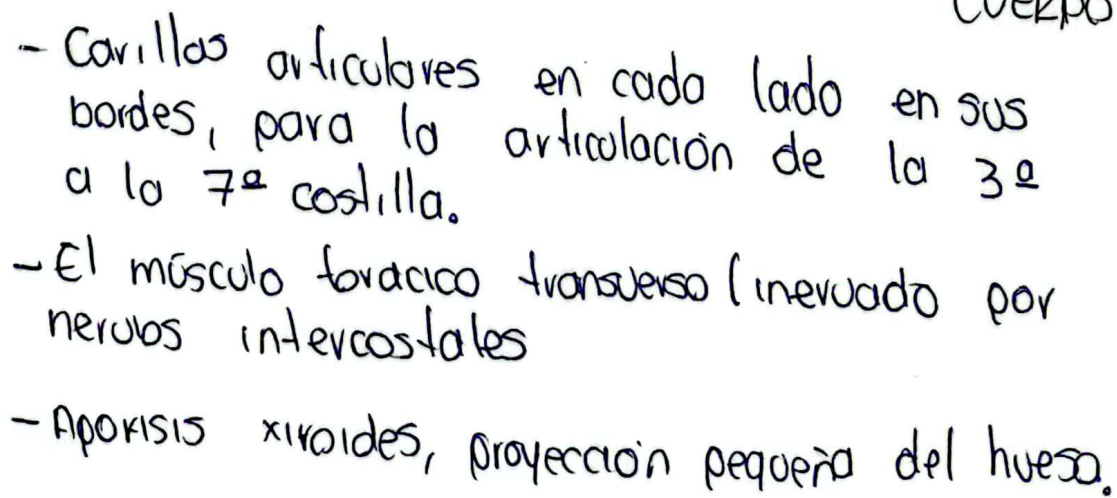 CUERPO
- Carillas articulares en cada lado en sus
bordes, para la articulación de la 3ª
a la 7ª costilla.
- El músculo toracico transverso (inervado por
nervios intercostales
- Apofisis xifoides, proyección pequeña del hueso.